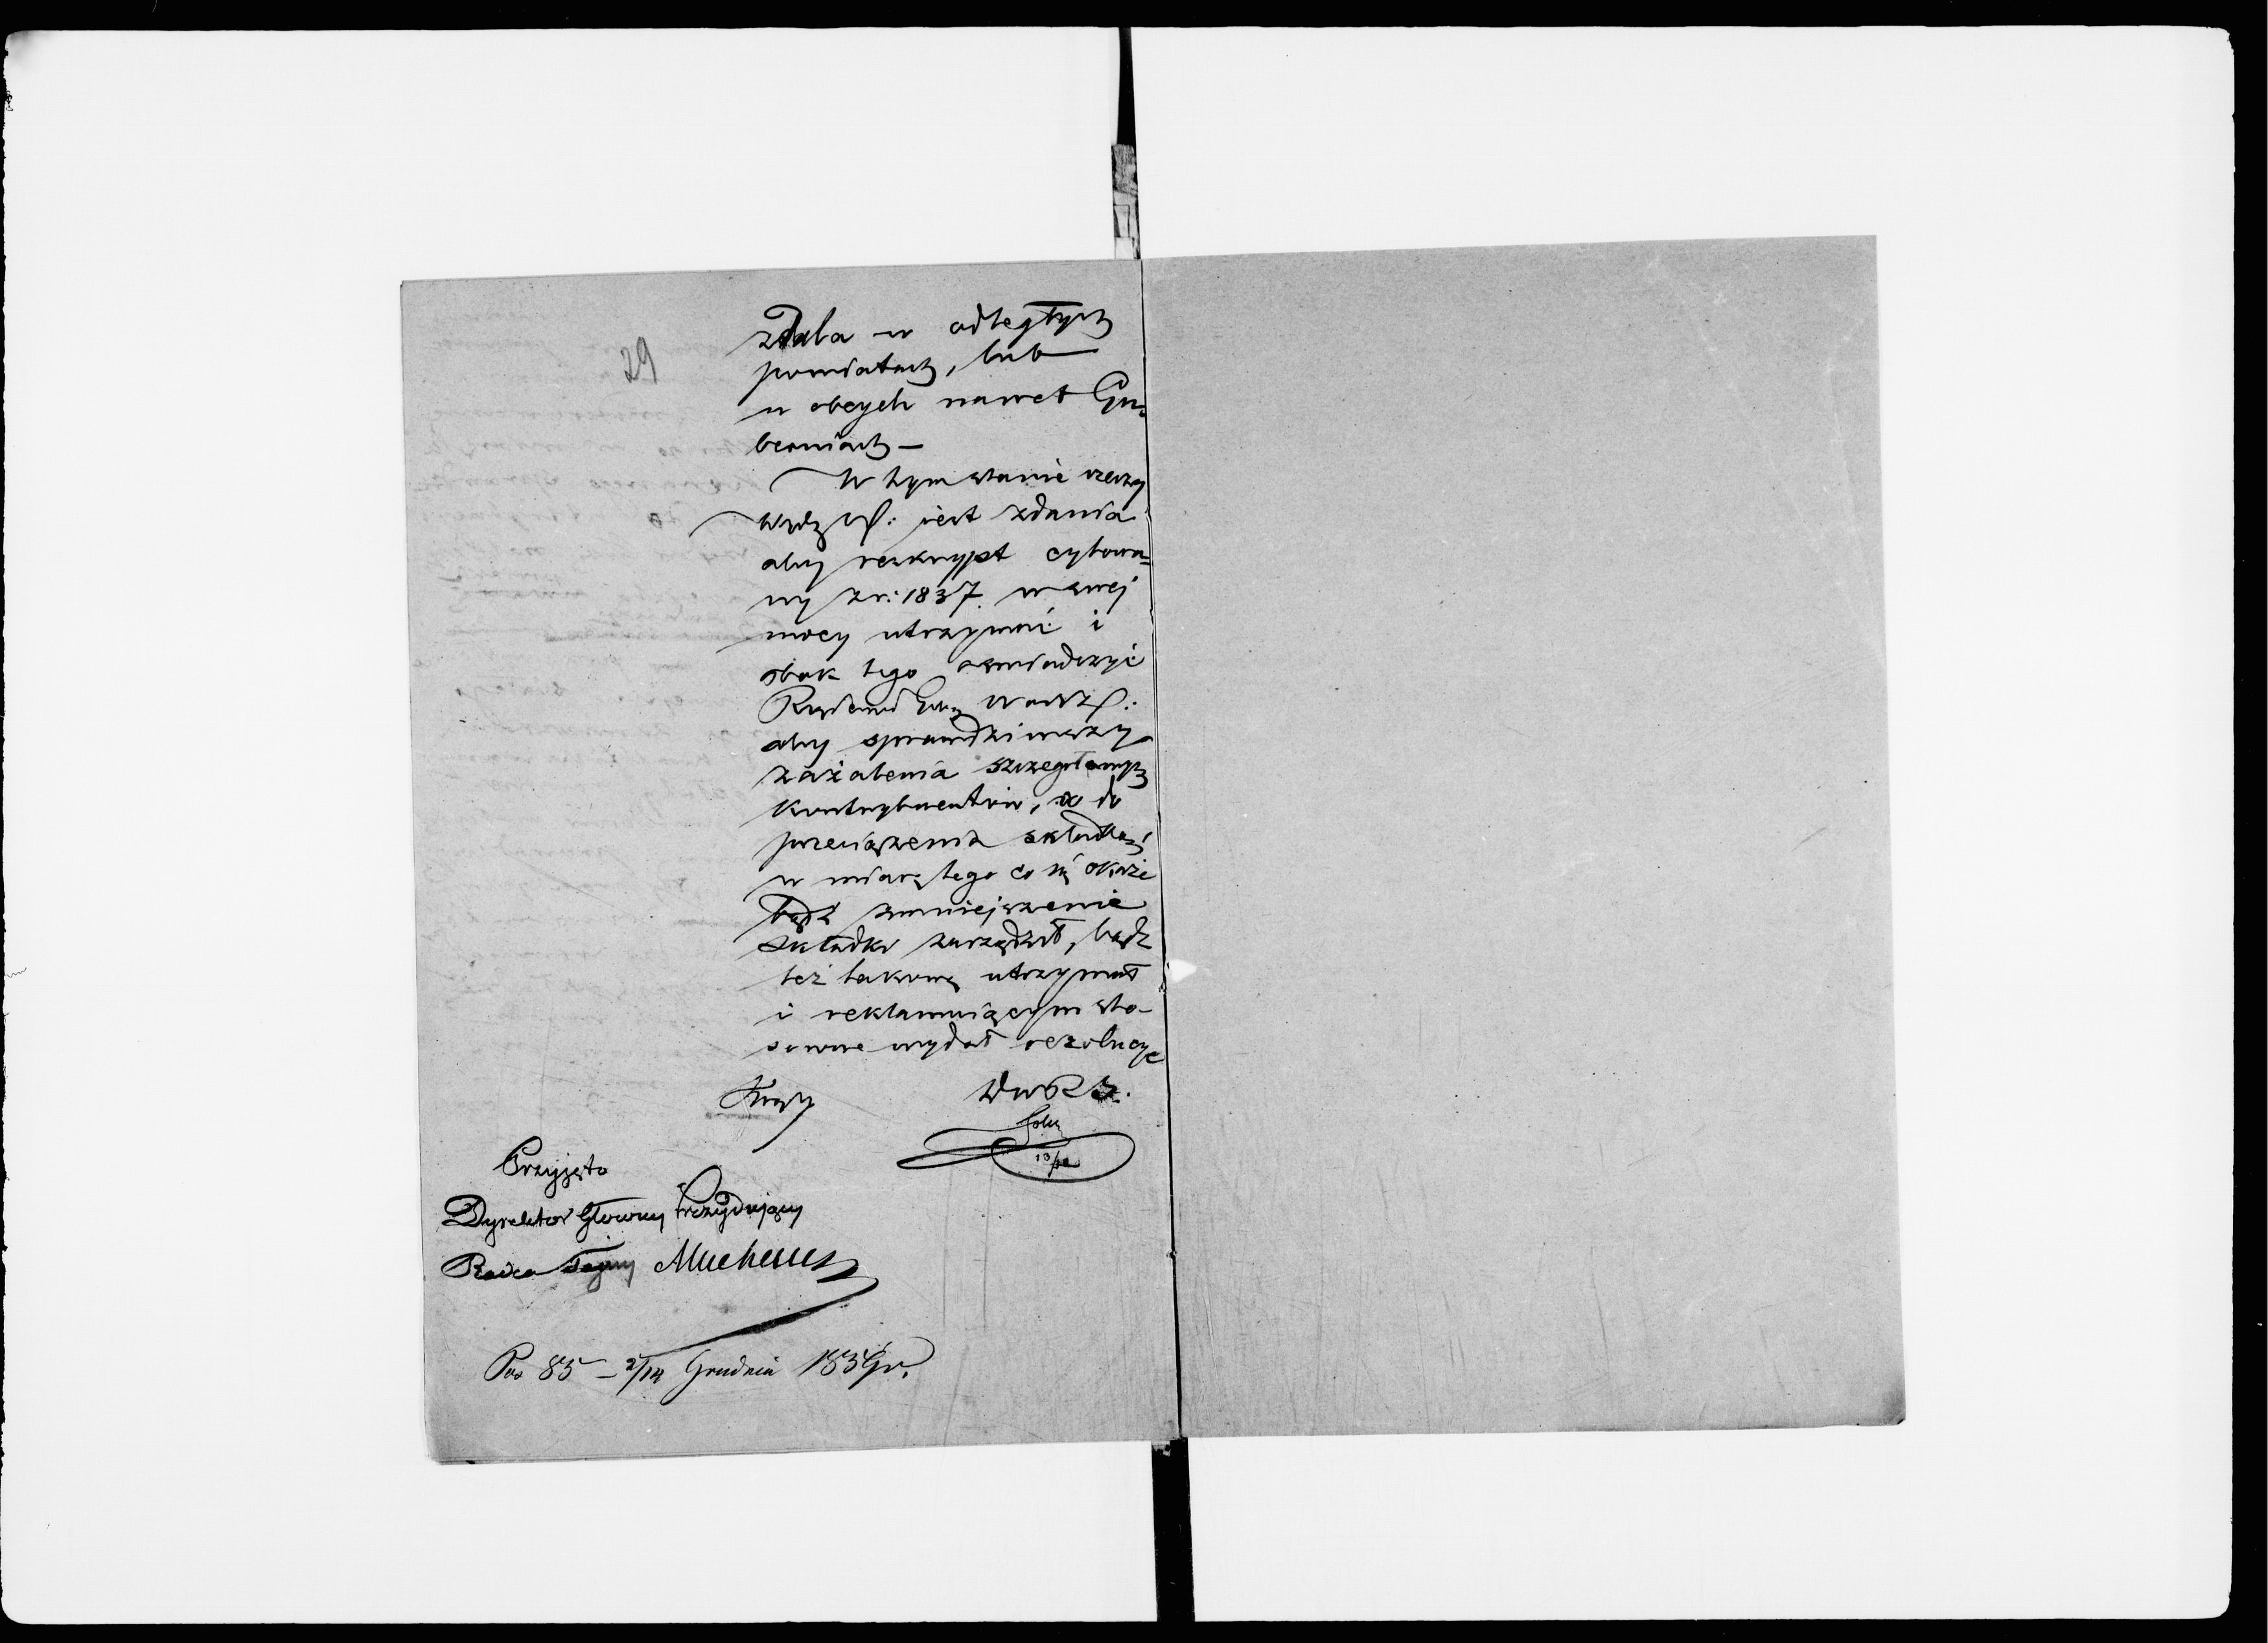 29
zdala w odległych
powiatach, lub
w obcych nawet Gu-
berniach —
W tym stanie rzeczy
Wydz jest zdania
aby reskrypt cytowa-
ny z r: 1837 w swej
mocy utrzymać i
obok tego oświadczyć
Rządowi Gub
aby sprawdziwszy
zażalenia szczegółowych
kontrybuentów, co do
przeciążenia składką
w miarę tego co się okaże
bądź zmniejszenie
składki zarządził, bądź
też takową utrzymał
i reklamującym sto-
sowne wydał rezolucye
Przyjęto
Dyrektor Główny Prezydujący
Radca Tajny
Pos 85 – 2/14 Grudnia 1839 r.